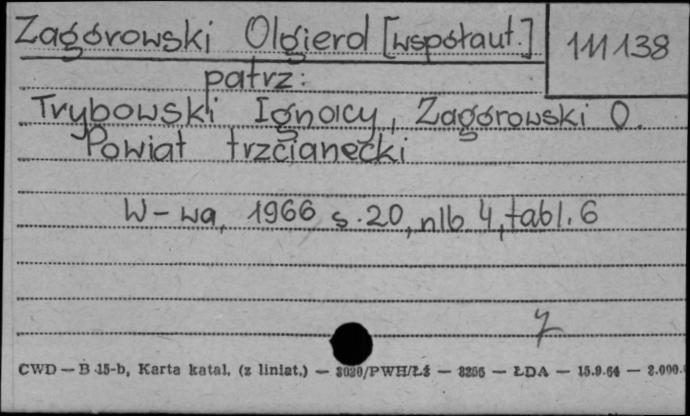 Zagórowski Olgierd [współaut.] 111138
patrz:
Trybowski Ignacy, Zagórowski O.
Powiat trzcianecki
W-wa, 1966 s. 20, nlb. 4, tabl. 6
CWD — B 15-b, Karta katal. (z liniat.) — /PWH/Łż — 8256 — ŁDA — 15.9.64 — 2.000.